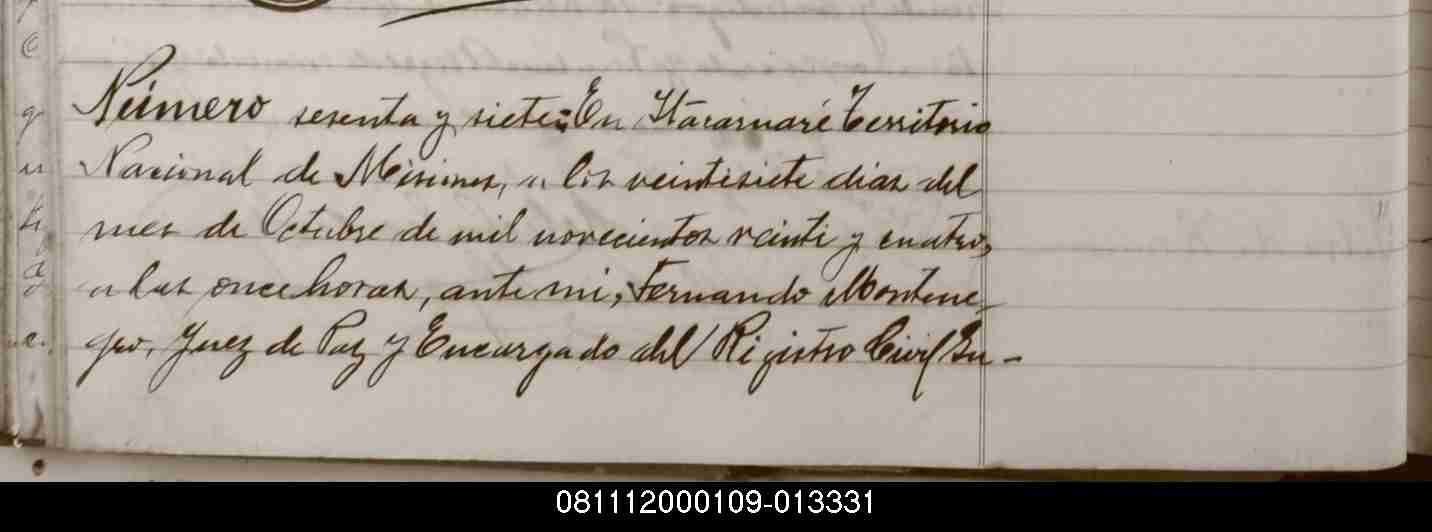 Número sesenta y siete: En Itacaruaré Territorio
Nacional de Misiones, a los veintisiete dias del
mes de Octubre de mil novecientos veinti y cuatro,
a las once horas, ante mi, Fernando Montene-
gro, Juez de Paz y Encargado del Registro Civil Su-
081112000109-013331